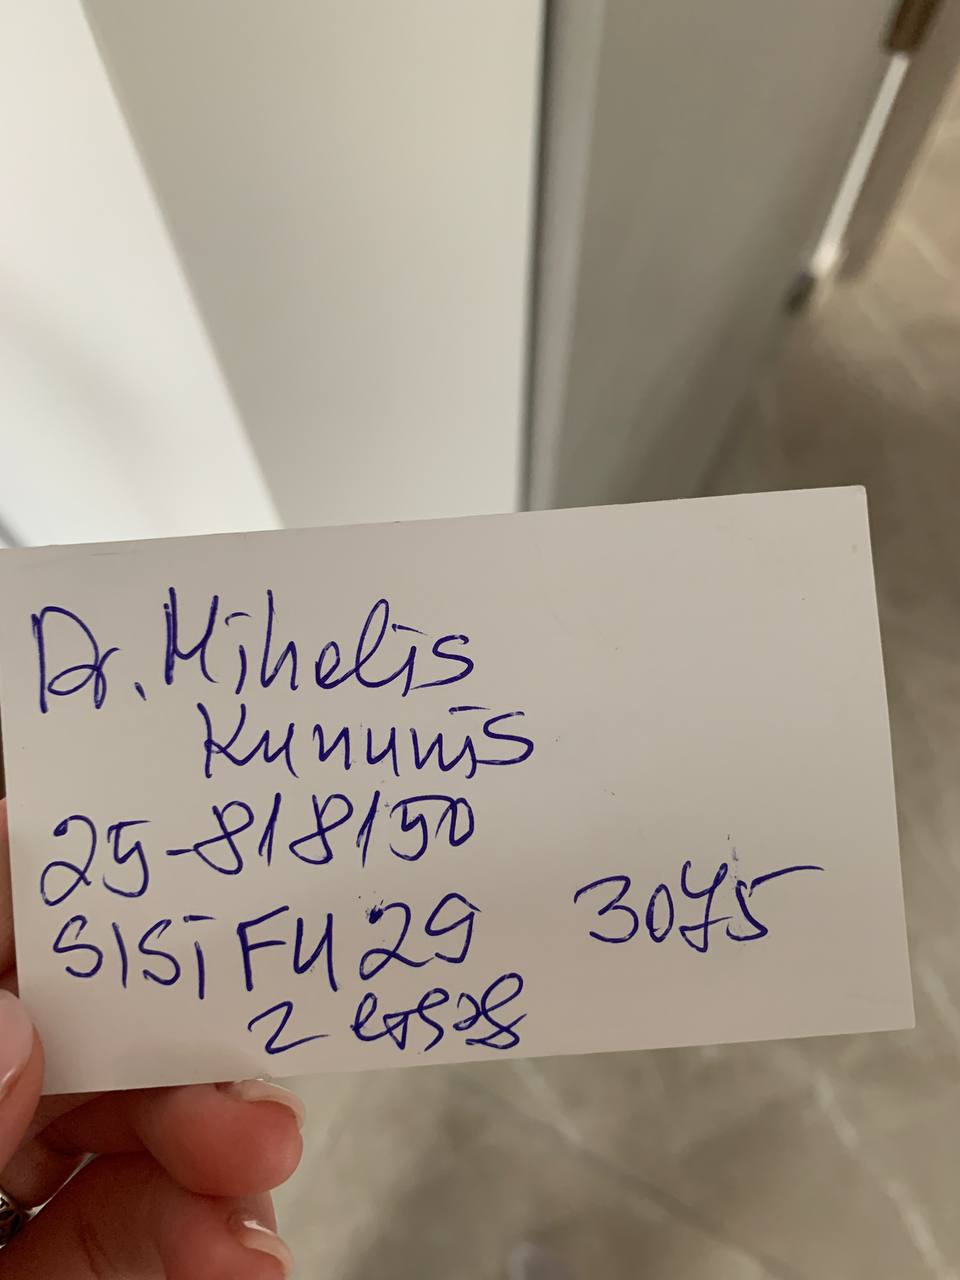 Dr. Mihalis
Kununis
25-818150
SISIFU 29 3075
2 этаж